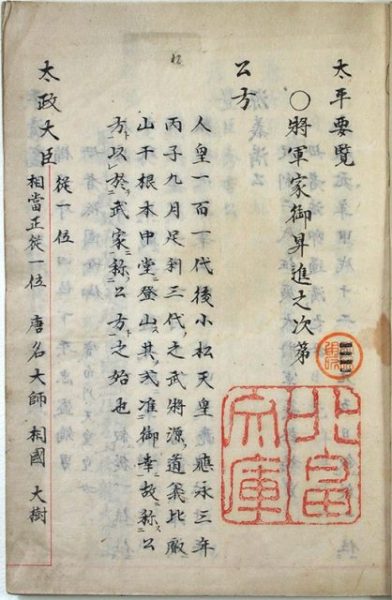 太平要覧
〇將軍家御昇進之次第
公方
人皇一百一代後小松天皇應永三年
丙子九月足利三代之武將源道義比叡
山于根本中堂登山其式准御幸故称公
方以於武家称公方之始也
太政大臣
從一位
相當正從一位 唐名大師 相國 大樹
北畠文庫